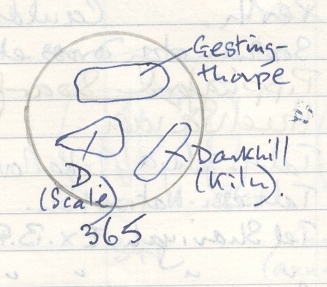 Gesting-
thorpe
Darkhill
(Kiln).
D
(Scale)
365